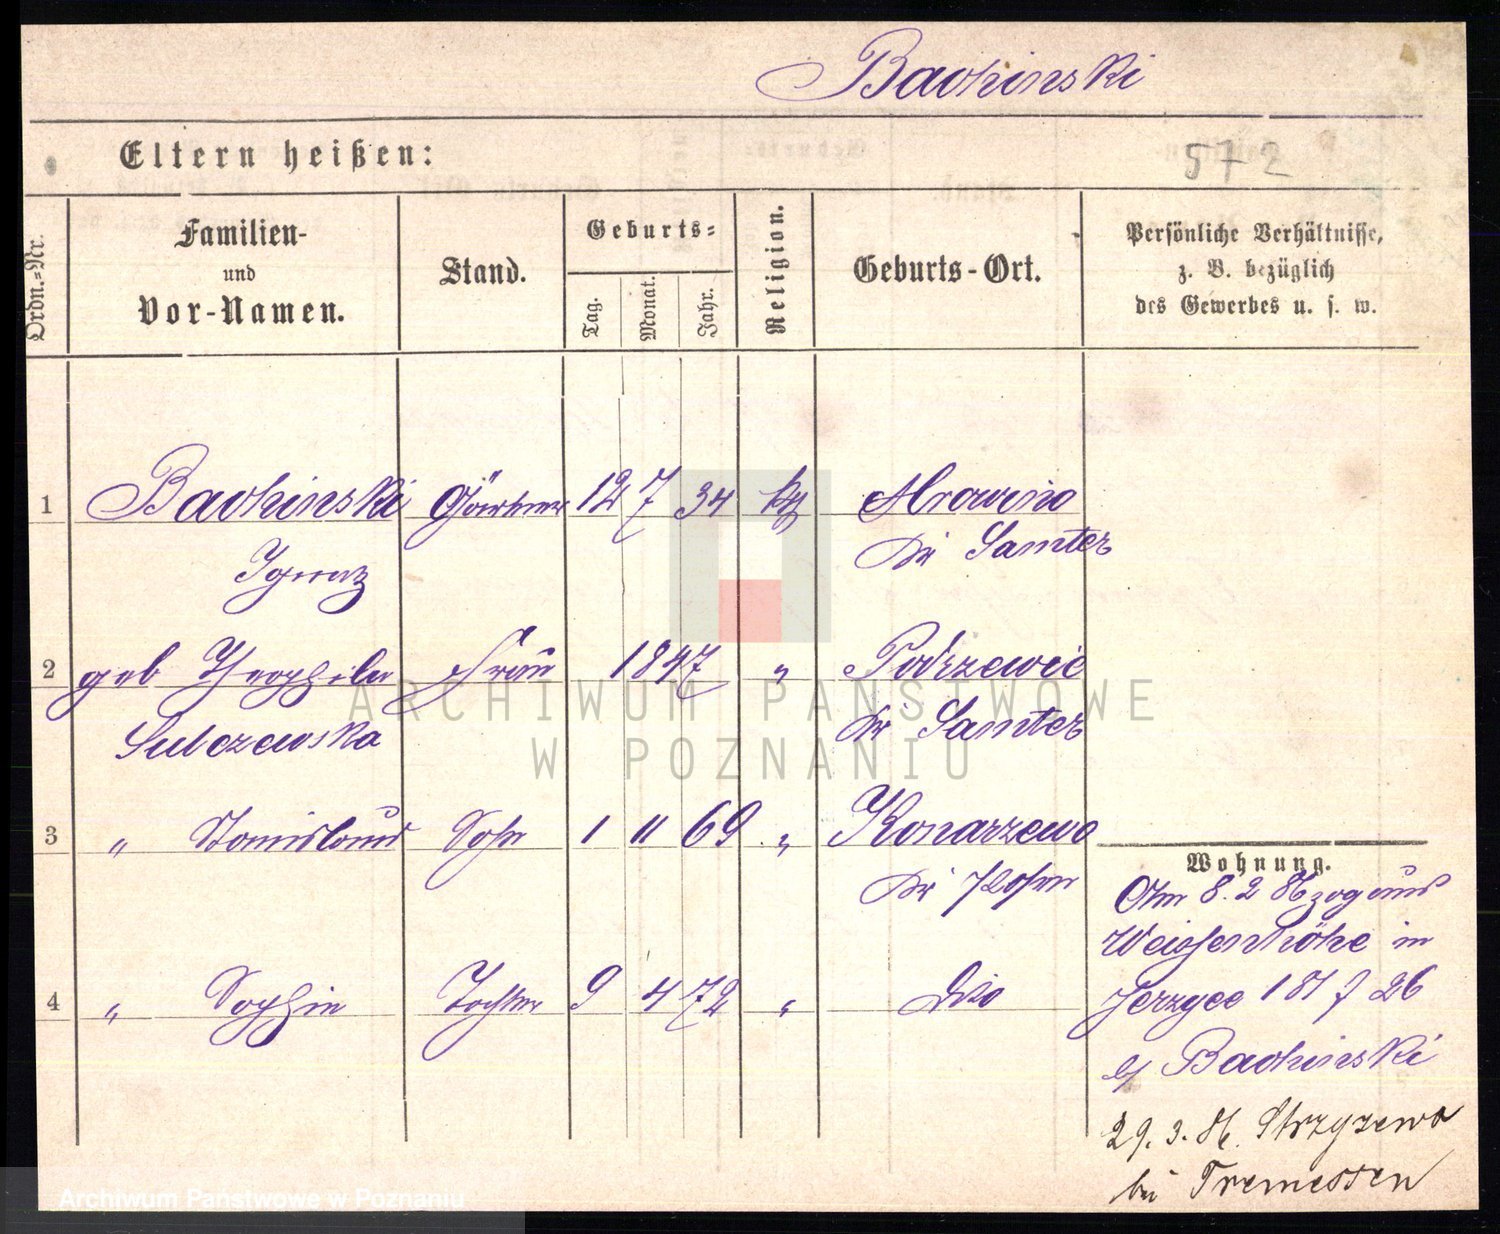 Bachinski
Eltern heißen:
572
Ordn.-Nr.
Familien-
und
Vor-Namen.
Stand.
Geburts-
Tag.
Monat.
Jahr.
Religion.
Geburts-Ort.
Persönliche Verhältnisse,
z. B. bezüglich
des Gewerbes u. s. w.
1 Bachinski Gärtner 12 7 34 kth
Ignaz Kr Samter
2 geb Theophila Frau 1847 " Podrzewie
Kr Samter
3 " Stanislaus Sohn 1 11 69 " Konarzewo
Kr Posen
4 " Sophie Tochter 9 4 72 " dito
Wohnung.
Am 8.2 86 zog aus
Weissenhöhe in
Jerzyce 181 f 26
b/ Bachinski
29.3.86. Strzyzewo
bei Tremessen
ARCHIWUM PAŃSTWOWE
W POZNANIU
Archiwum Państwowe w Poznaniu